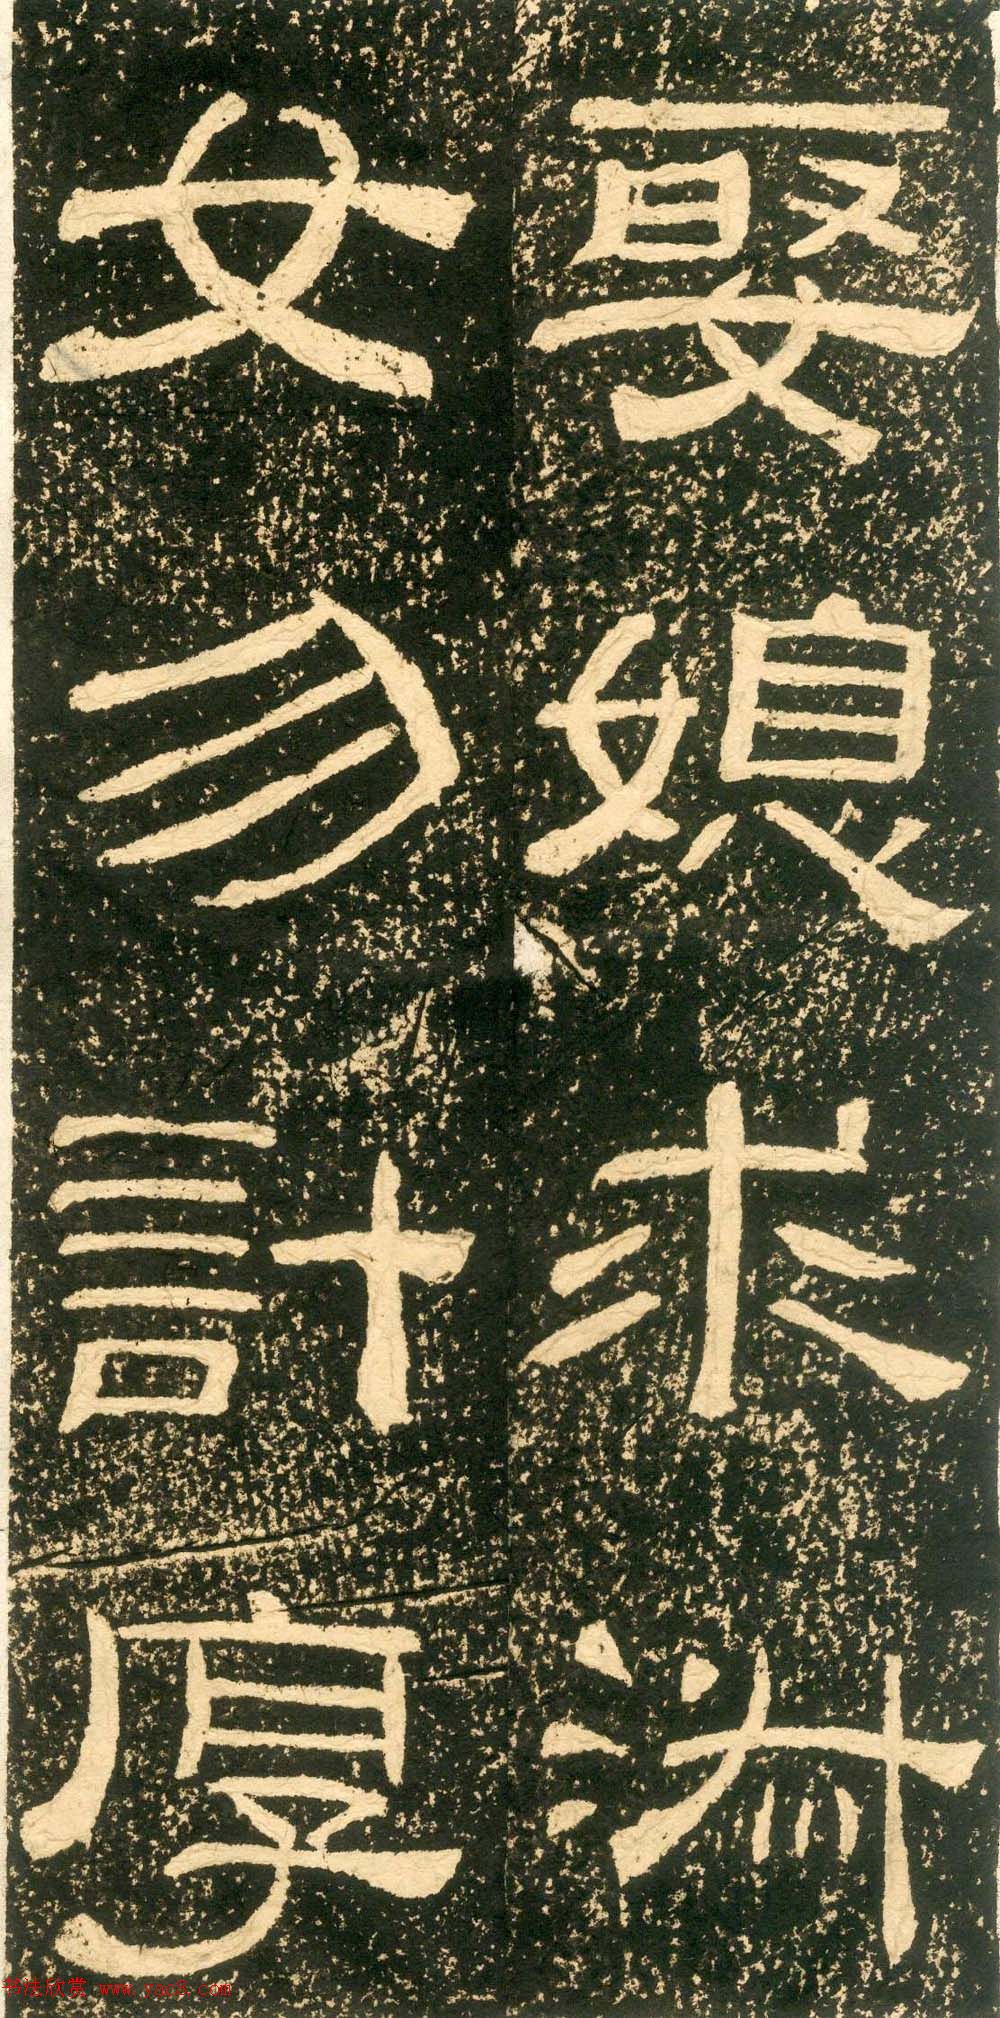 娶媳求淑
女勿計厚
书法欣赏 www.yac8.com